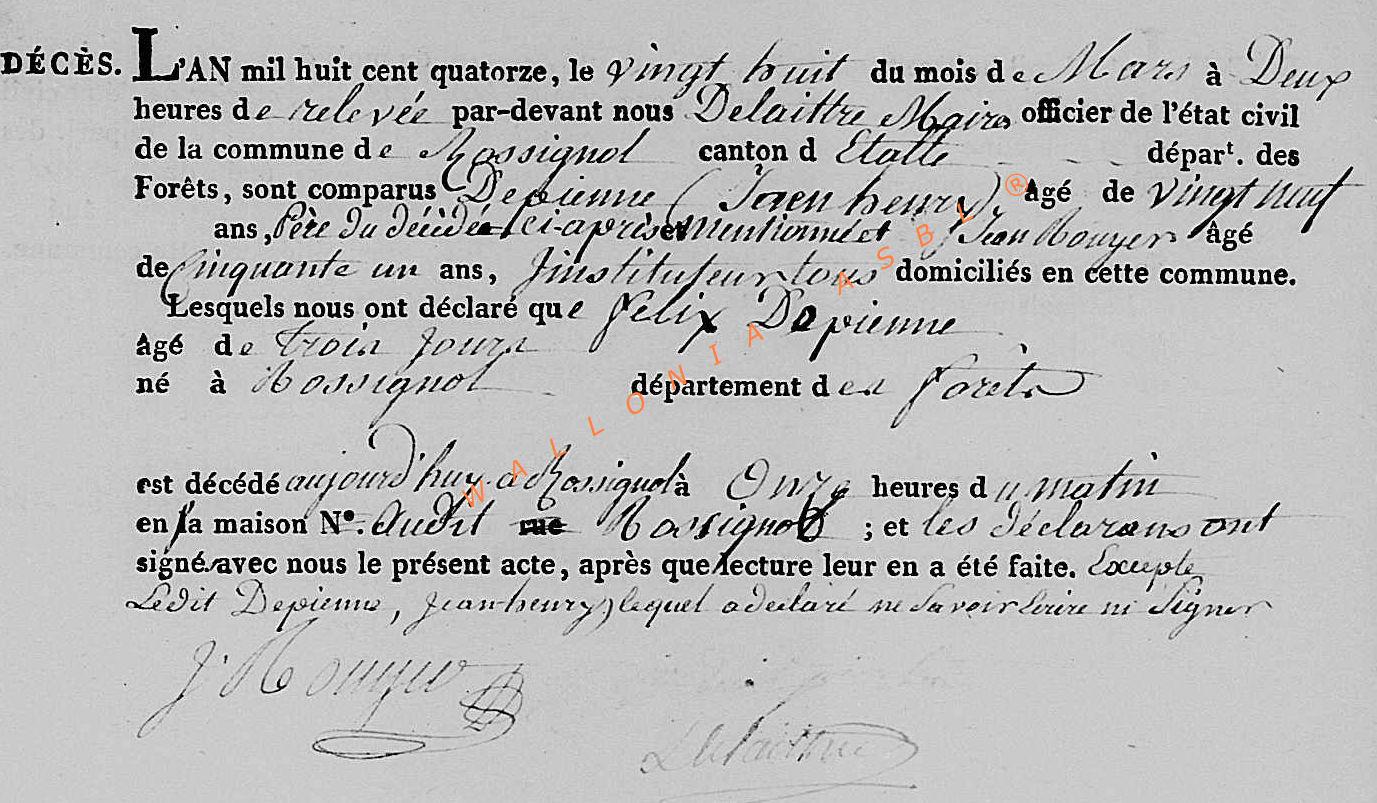 DÉCÈS. L'AN mil huit cent quatorze, le vingt huit du mois de Mars à Deux
heures de relevée par-devant nous Delaittre Maire officier de l'état civil
de la commune de Rossignol canton d Etalle départ. des
Forêts, sont comparus Depienne (Jaen henry) âgé de vingt neuf
ans, Père du décédé ci-après mentionné et Jean Rouyer âgé
de Cinquante un ans, Jinstituteur tous domiciliés en cette commune.
Lesquels nous ont déclaré que felix Depienne
âgé de trois Jours
né à Rossignol département des forêts
est décédé aujourd'huy a Rossignol à Onze heures du matin
en sa maison N°. audit rue Rossignol ; et les déclarans ont
signé avec nous le présent acte, après que lecture leur en a été faite. Excepté
Ledit Depienne, Jean-henry) lequel a declaré ne Savoir Ecrire ni Signer
J. Rouyer
Delaittre
WALLONIA ASBL ®